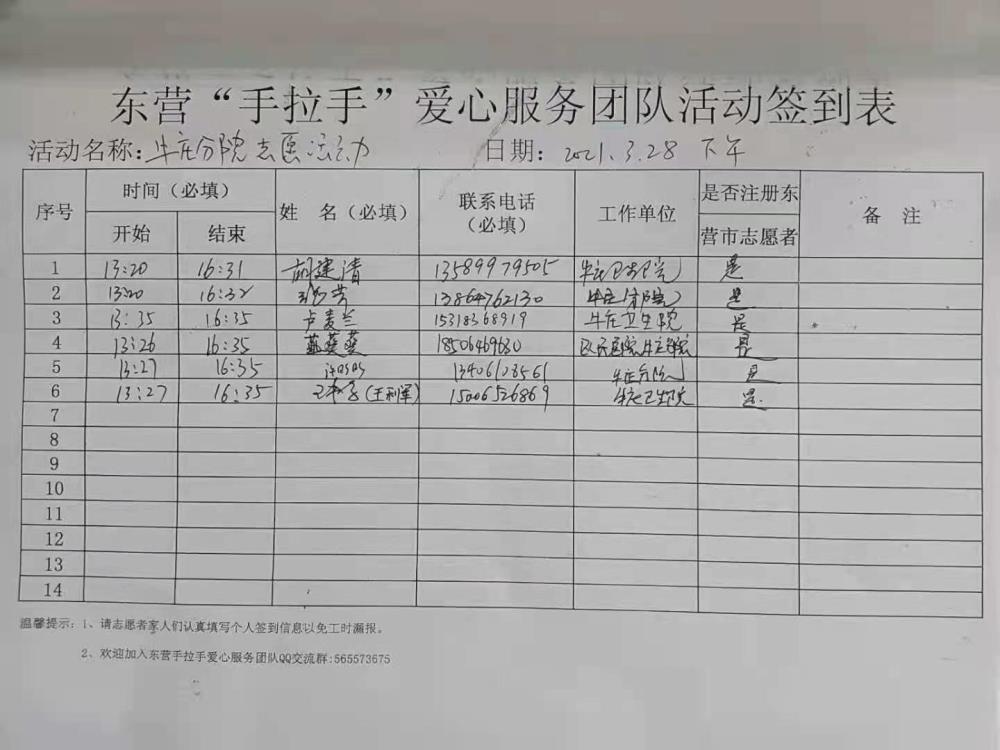 东营“手拉手”爱心服务团队活动签到表
活动名称：牛庄分院志愿活动 日期：2021.3.28 下午
序号 时间（必填） 姓 名（必填） 联系电话（必填） 工作单位 是否注册东营市志愿者 备 注
开始 结束
1 13:20 16:31 胡建清 13589979505 牛庄卫生院 是
2 13:20 16:32 芳 13864762130 牛庄 是
3 13:35 16:35 卢麦兰 15318368919 牛庄卫生院 是
4 13:26 16:35 18506469630 是
5 13:27 16:35 13406108561 牛庄分院 是
6 13:27 16:35 (王利军) 15006526869 牛庄卫生院 是
7
8
9
10
11
12
13
14
温馨提示：1、请志愿者家人们认真填写个人签到信息以免工时漏报。
2、欢迎加入东营手拉手爱心服务团队QQ交流群:565573675